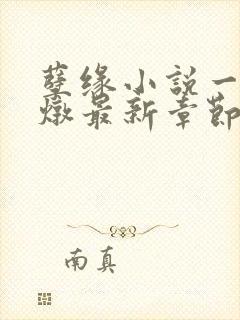 孽缘小説一
燉最新章節
南真